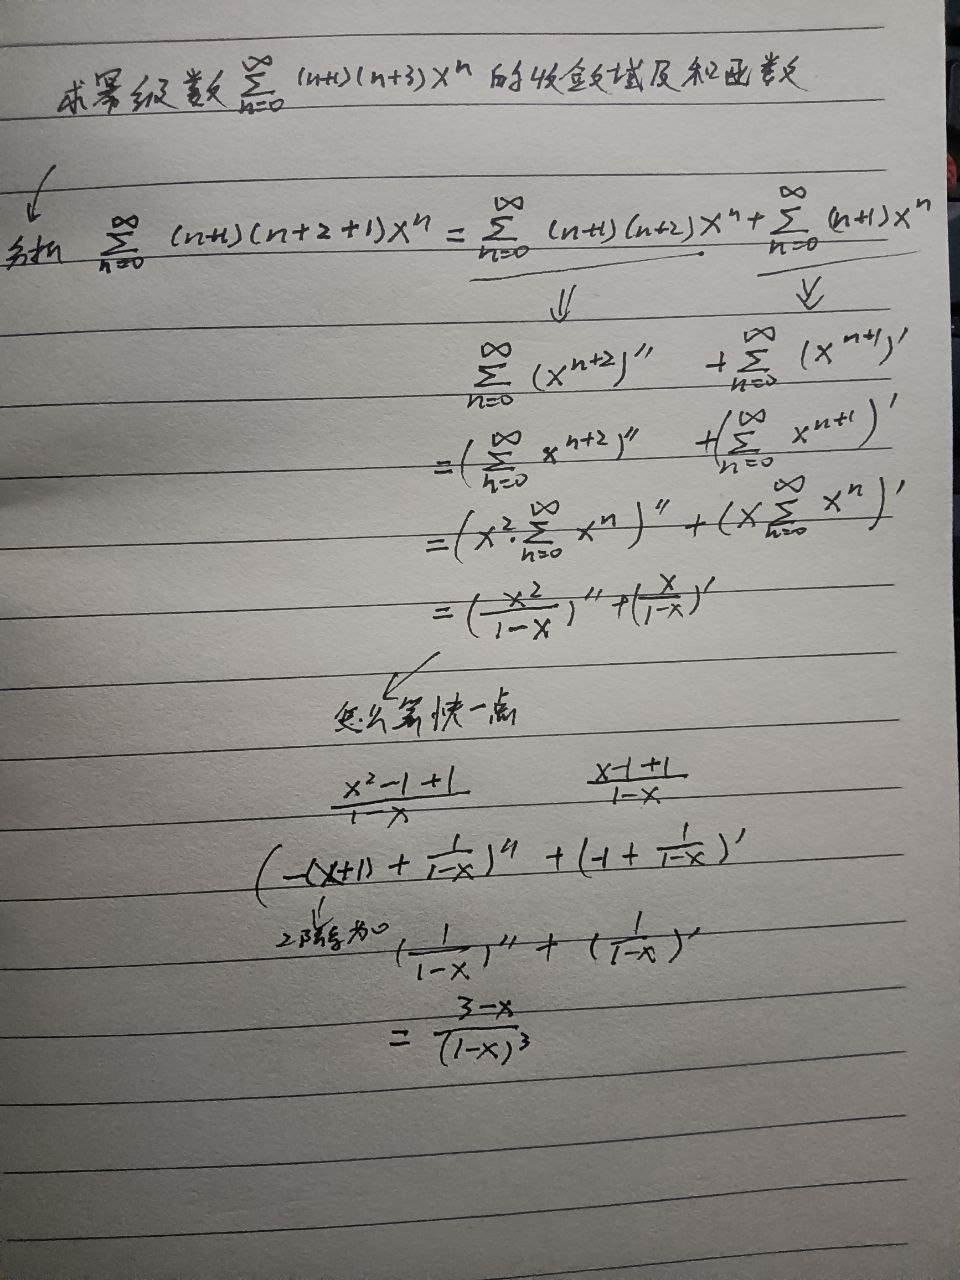 求幂级数 ∑_{n=0}^{∞} (n+1)(n+3)x^n 的收敛域及和函数
分析 ∑_{n=0}^{∞} (n+1)(n+2+1)x^n = ∑_{n=0}^{∞} (n+1)(n+2)x^n + ∑_{n=0}^{∞} (n+1)x^n
∑_{n=0}^{∞} (x^{n+2})'' + ∑_{n=0}^{∞} (x^{n+1})'
= (∑_{n=0}^{∞} x^{n+2})'' + (∑_{n=0}^{∞} x^{n+1})'
= (x^2·∑_{n=0}^{∞} x^n)'' + (x∑_{n=0}^{∞} x^n)'
= (x^2/(1-x))'' + (x/(1-x))'
怎么算快一点
(x^2-1+1)/(1-x) (x-1+1)/(1-x)
(-(x+1) + 1/(1-x))'' + (-1 + 1/(1-x))'
2阶导为0 (1/(1-x))'' + (1/(1-x))'
= (3-x)/(1-x)^3